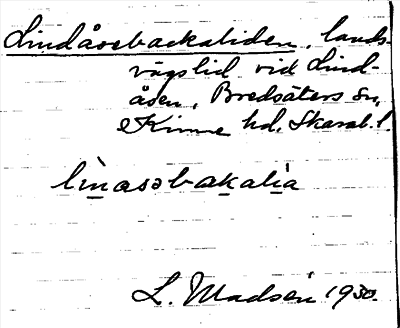 Lindåssbackaliden, lands-
vägslid vid Lind-
åsen, Bredsäters sn,
Kinne hd, Skarab. l.
linassbakalia
L. Madsén 1930.